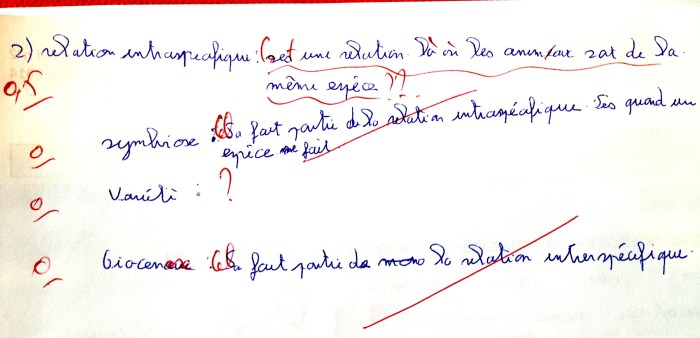 2) relation intraspecifique : C'est une relation là où les animaux sont de la
0,5
même espèce ??
0
symbiose : Ça fait partie de la relation intraspécifique. Des quand un
espèce me fait
0
Variété : ?
0
biocenose : Ça fait partie de la relation interspécifique.